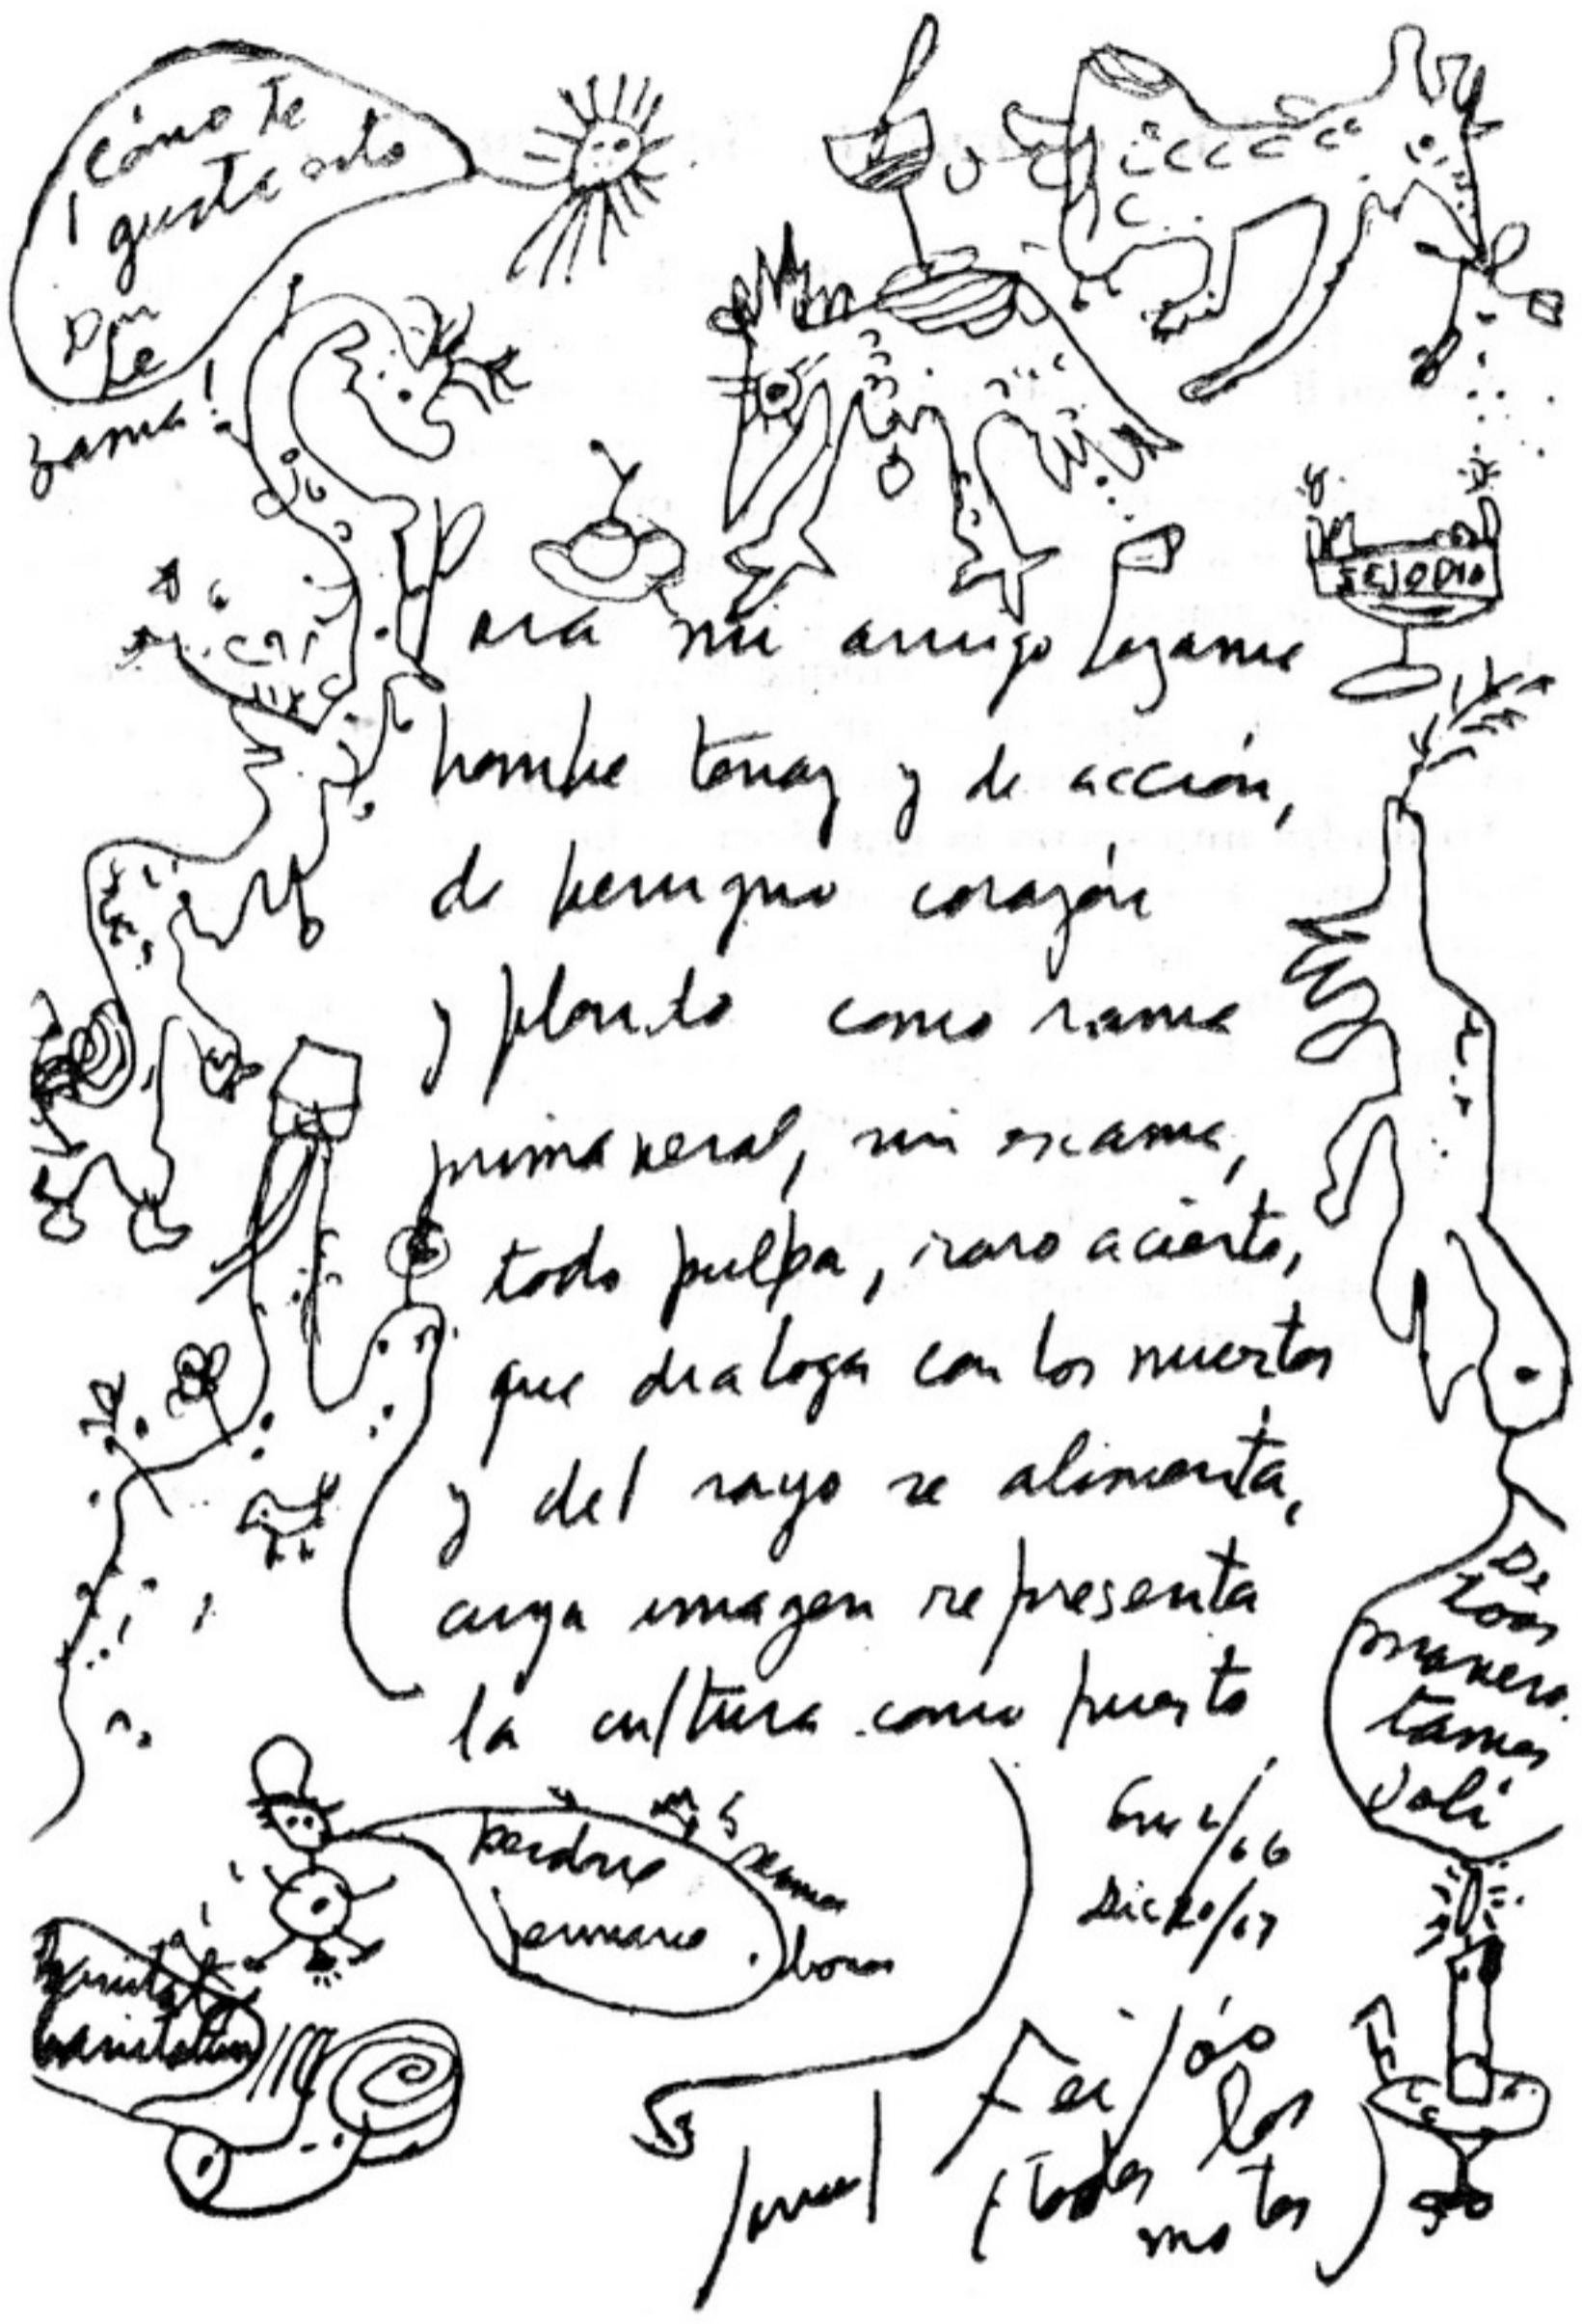 ¡cómo te
gusta esto
Para mi amigo Lezama
hombre tenaz y de acción,
de benigno corazón
y planto como rama
primaveral, sin escama,
todo pulpa, raro acierto,
que dialoga con los muertos
y del rayo se alimenta,
cuya imagen representa
la cultura como puerto
De
toas
manera
tamos
Perdone
hermano
Dic 20/67
Feijóo
Samuel
(todos los